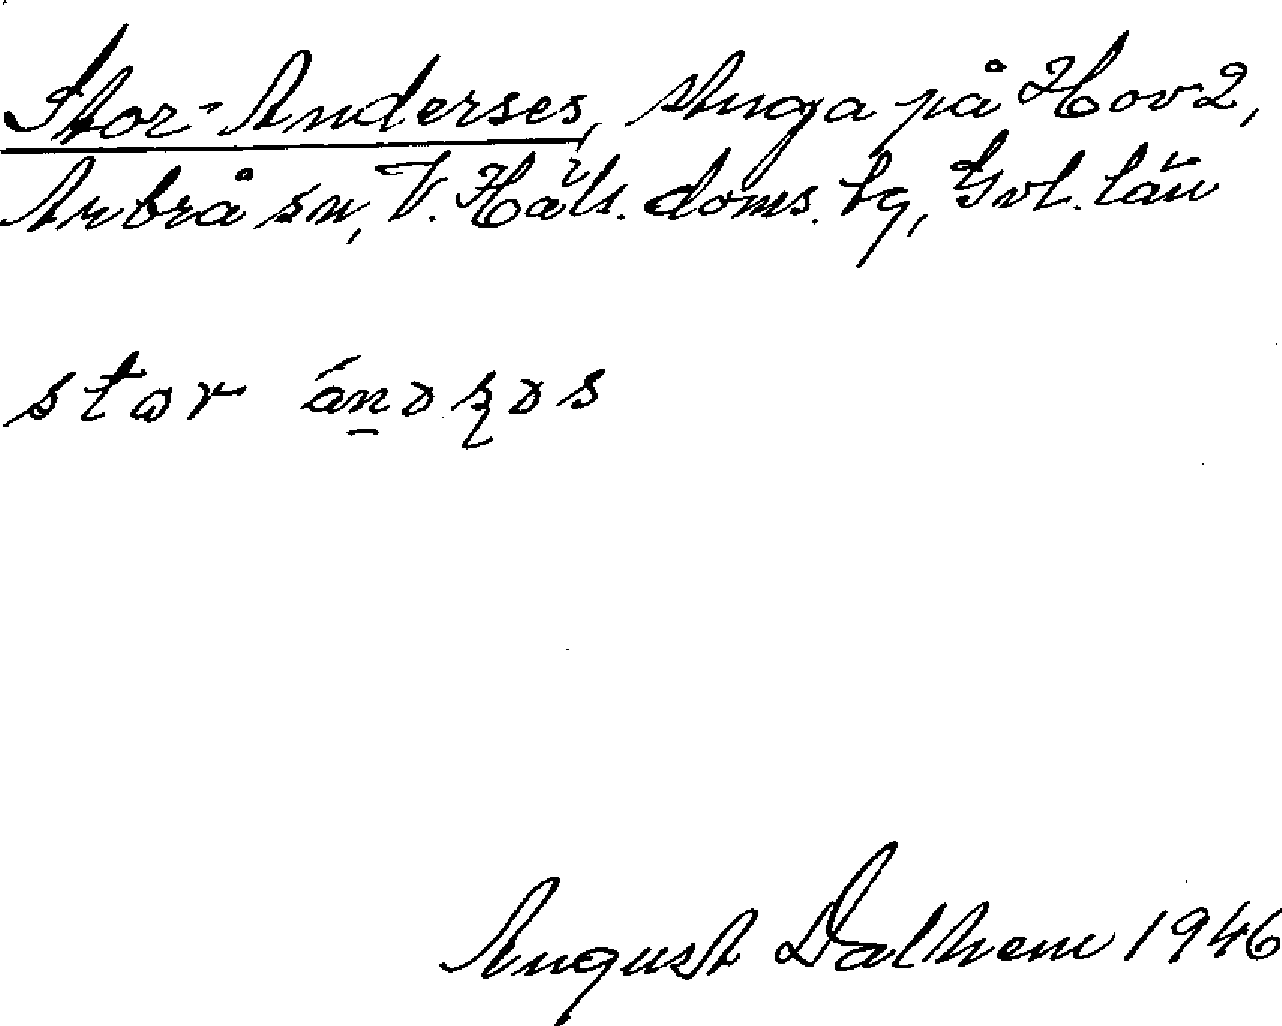 Stor-Anderses, stuga på Hov 2,
Arbrå sn, V. Häls. doms. lg, Gvl. län
stɷr ánəʂəs
August Dalhem 1946